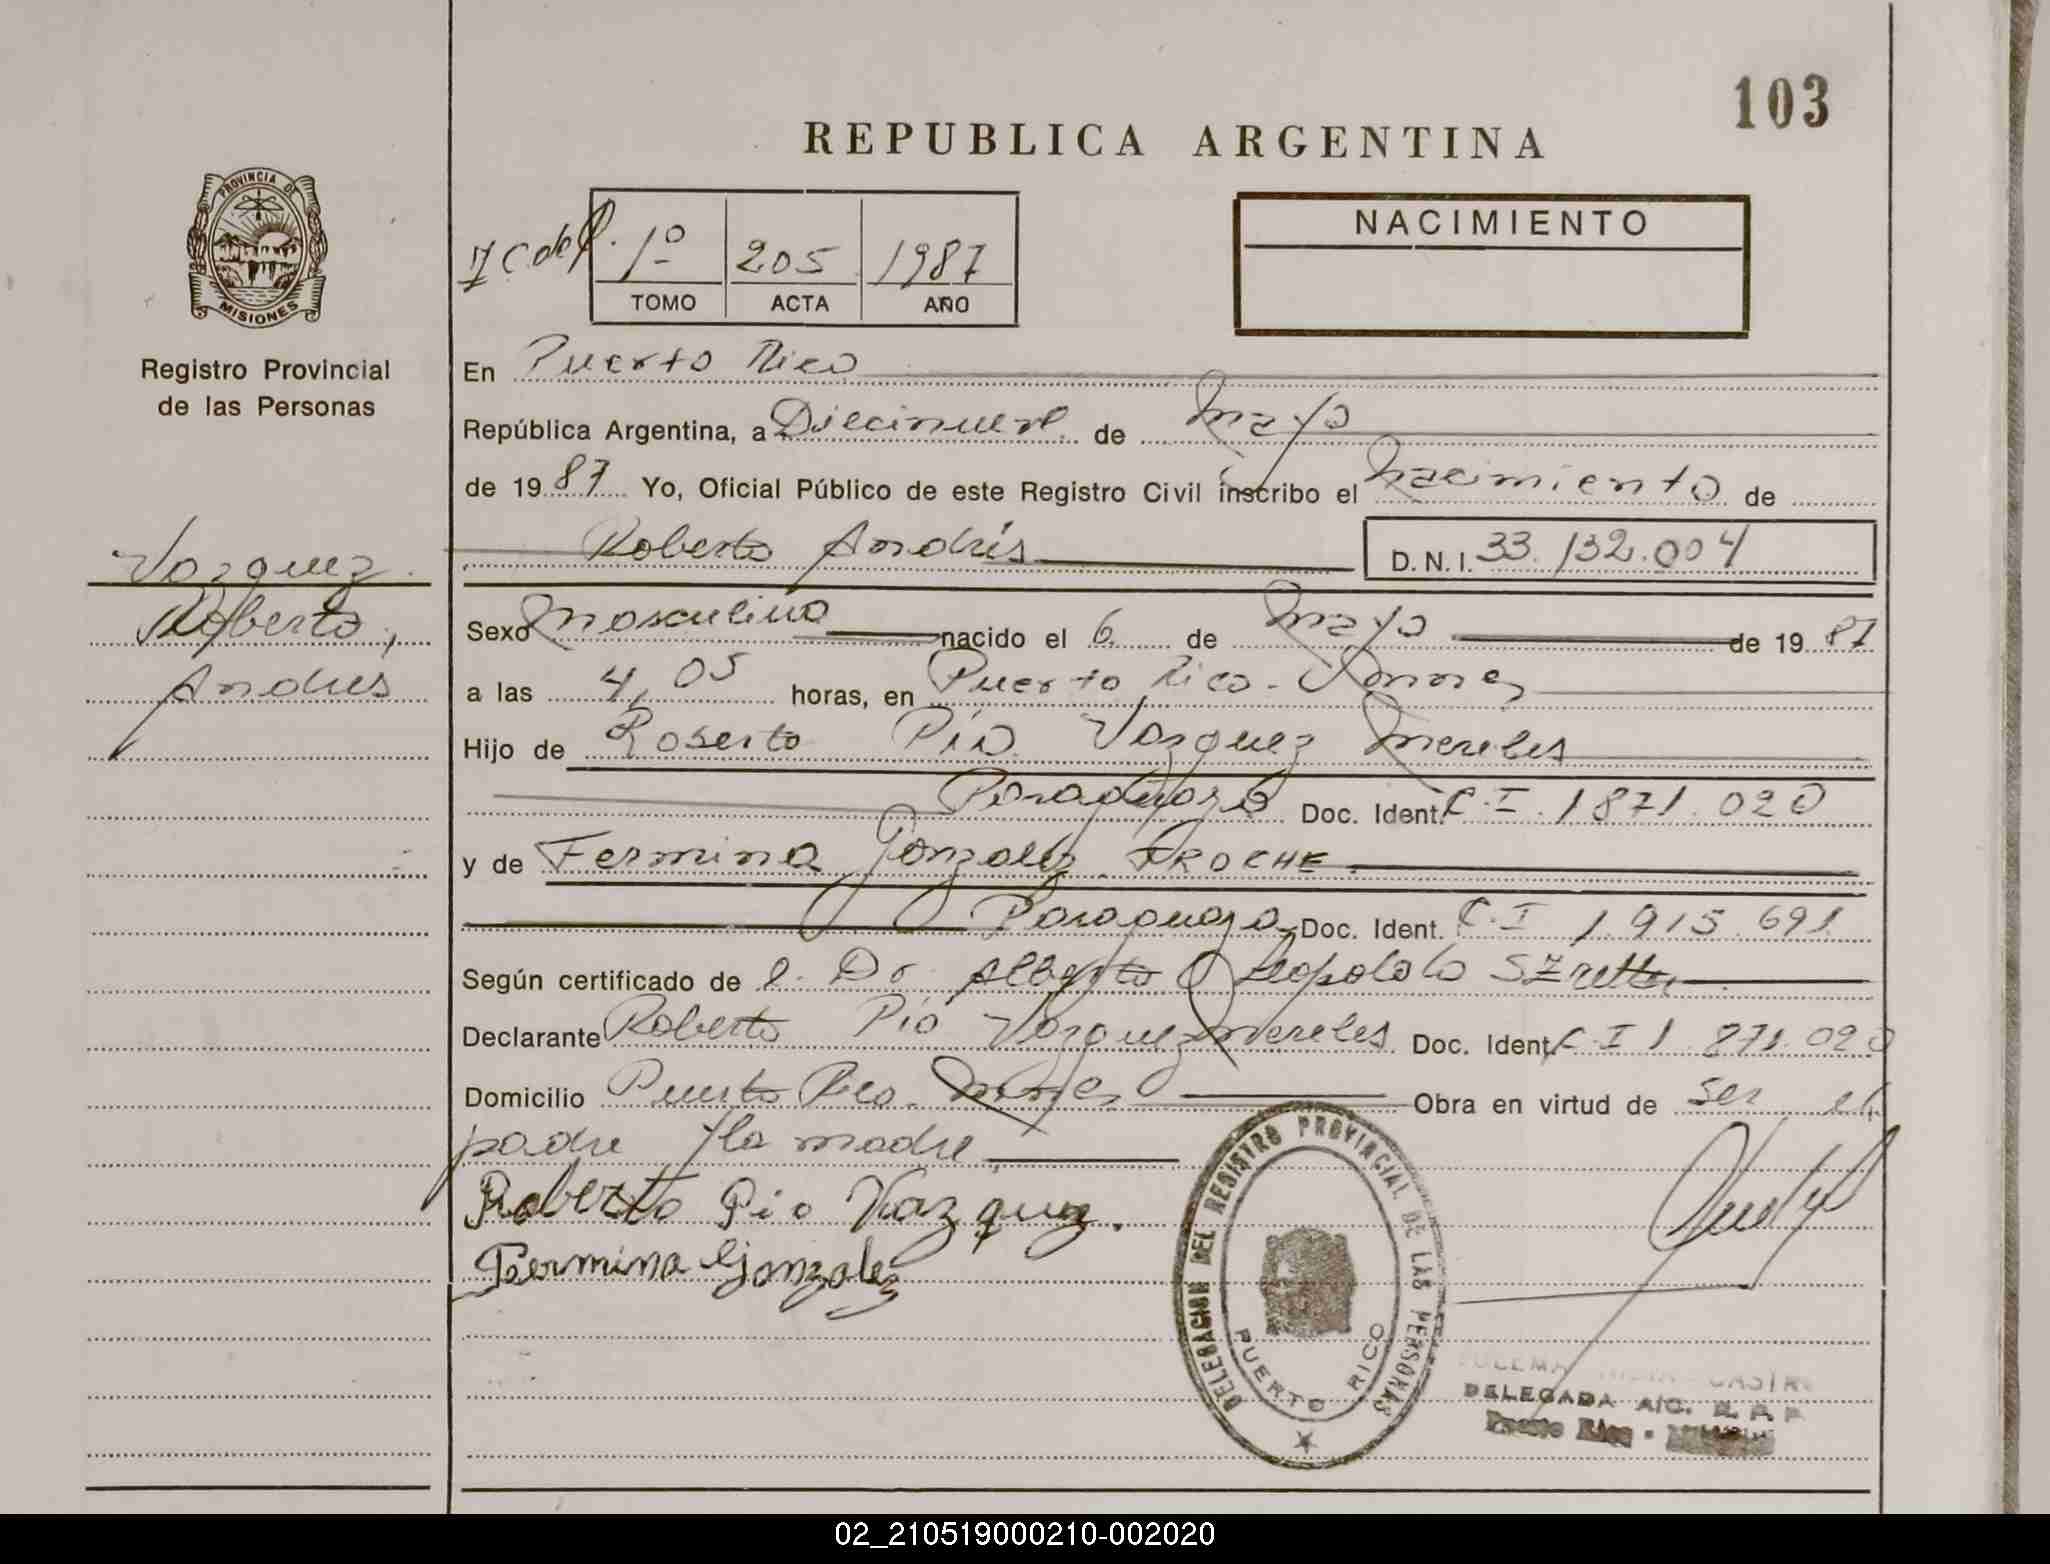 103
REPUBLICA ARGENTINA
PROVINCIA DE
MISIONES
Registro Provincial
de las Personas
1º 205 1987
TOMO ACTA AÑO
NACIMIENTO
En Puerto Rico
República Argentina, a Diecinueve de Mayo
de 1987 Yo, Oficial Público de este Registro Civil inscribo el Nacimiento de
Roberto Andrés D.N.I. 33.132.004
Vazquez
Roberto,
Andrés
Sexo Masculino nacido el 6 de Mayo de 1987
a las 4,05 horas, en Puerto Rico -
Hijo de Roberto Pío Vazquez Mereles
Paraguayo Doc. Ident. C.I. 1871.020
y de Fermina Gonzalez AROCHE
Paraguaya Doc. Ident. C.I 1.915.691
Según certificado de Dr. Alberto Leopoldo
Declarante Roberto Pío Vazquez Mereles Doc. Ident. C.I 1.871.020
Domicilio Puerto Rico. Obra en virtud de ser el
padre y la madre
Roberto Pio Vazquez.
Fermina Gonzalez
DELEGACION DEL REGISTRO PROVINCIAL DE LAS PERSONAS
PUERTO RICO
DELEGADA A/C. R. P. P
Puerto Rico -
02_210519000210-002020